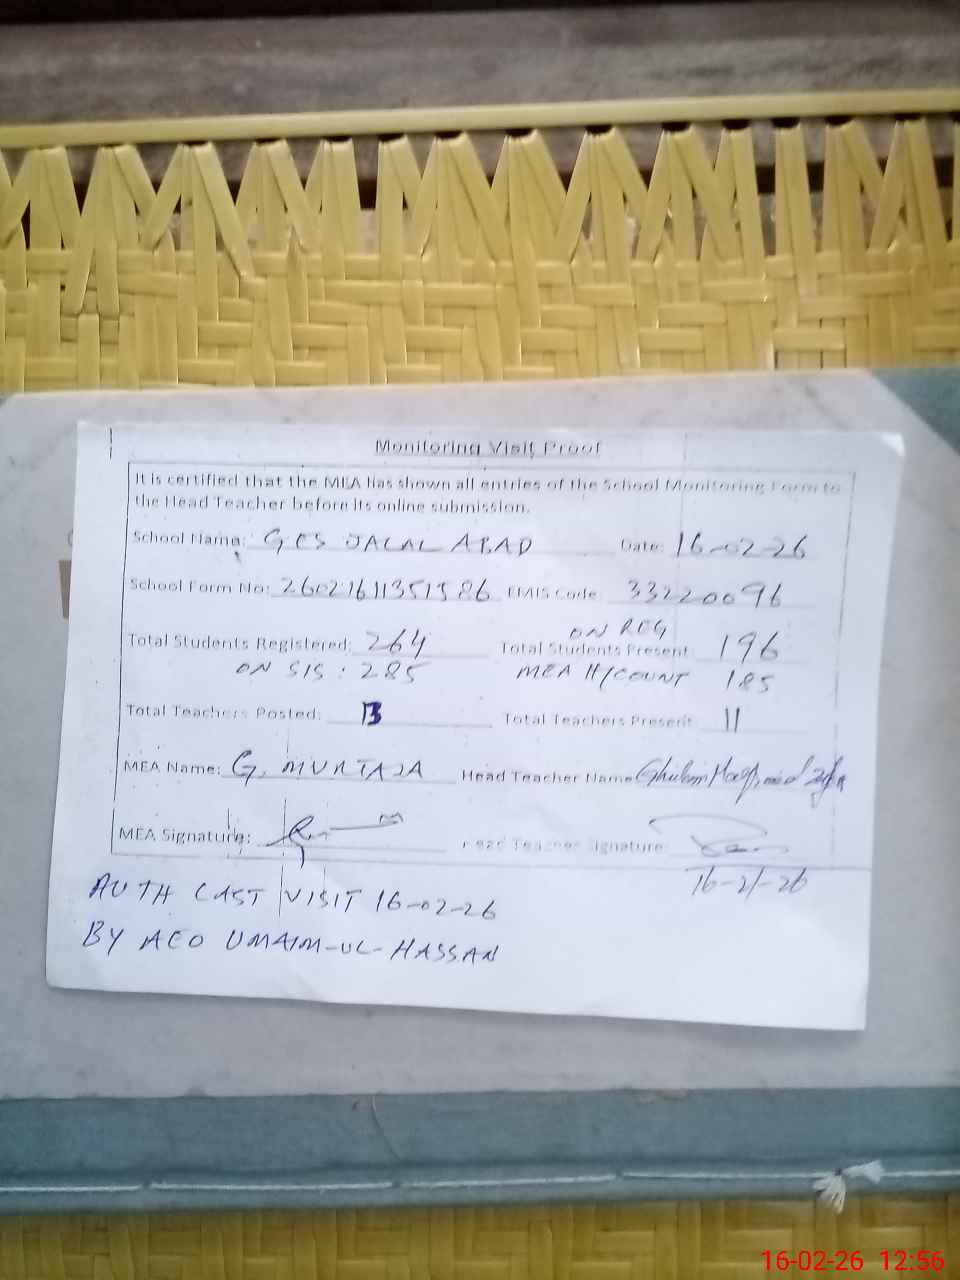 Monitoring Visit Proof
It is certified that the MEA has shown all entries of the School Monitoring Form to
the Head Teacher before its online submission.
School Name: GES JALAL ABAD Date: 16-02-26
School Form No: 26021611351586 EMIS Code: 33220096
ON REG
Total Students Registered: 264 Total Students Present 196
ON SIS : 285 MEA H/COUNT 185
Total Teachers Posted: 13 Total Teachers Present: 11
MEA Name: G. MURTAZA Head Teacher Name
MEA Signature: Head Teacher Signature:
AUTH LAST VISIT 16-02-26
BY AEO UMAIM-UL-HASSAN
16-02-26 12:56